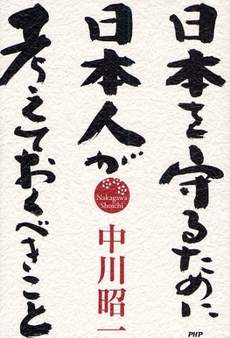 日本を守るために
日本人が
考えておくべきこと
Nakagawa
Shoichi
中川昭一
PHP